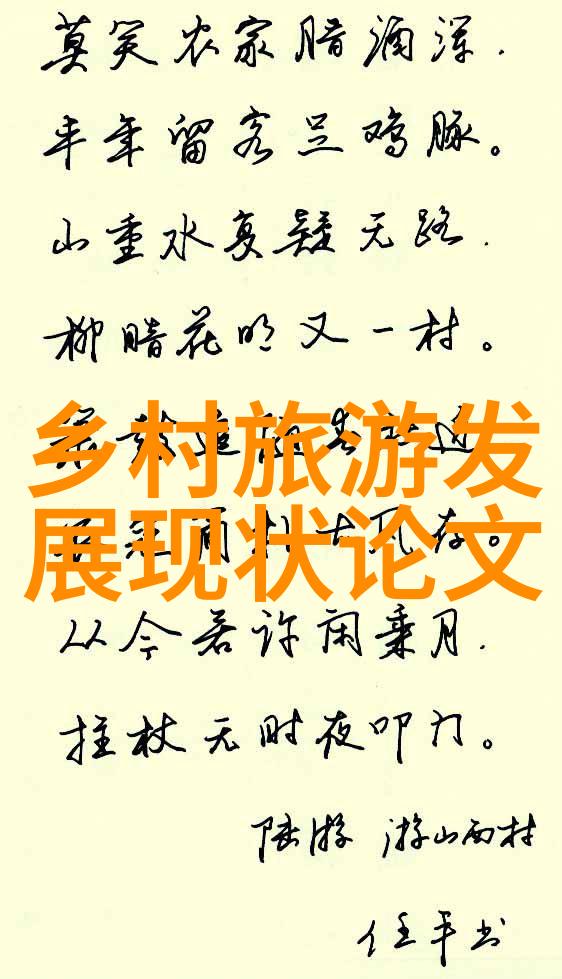 莫笑农家腊酒浑，
丰年留客足鸡豚。
山重水复疑无路，
柳暗花明又一村。
追随春社近
乡村旅游发
古风存。
展现状论文
从今若许闲乘月，
拄杖无时夜叩门。
陆游 游山西村
任平书